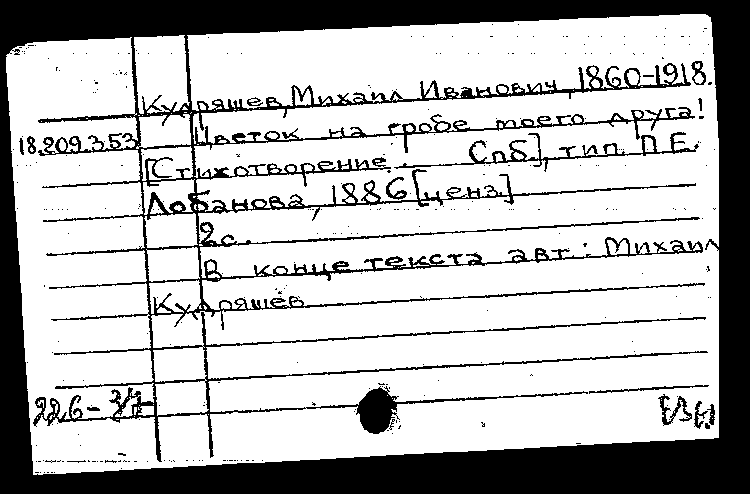 Кудряшев, Михаил Иванович, 1860-1918.
18.209.3.53 Цветок на гробе моего друга!
[Стихотворение. Спб.], тип. П.Е.
Лобанова, 1886 [ценз.]
2с.
В конце текста авт.: Михаил
Кудряшев